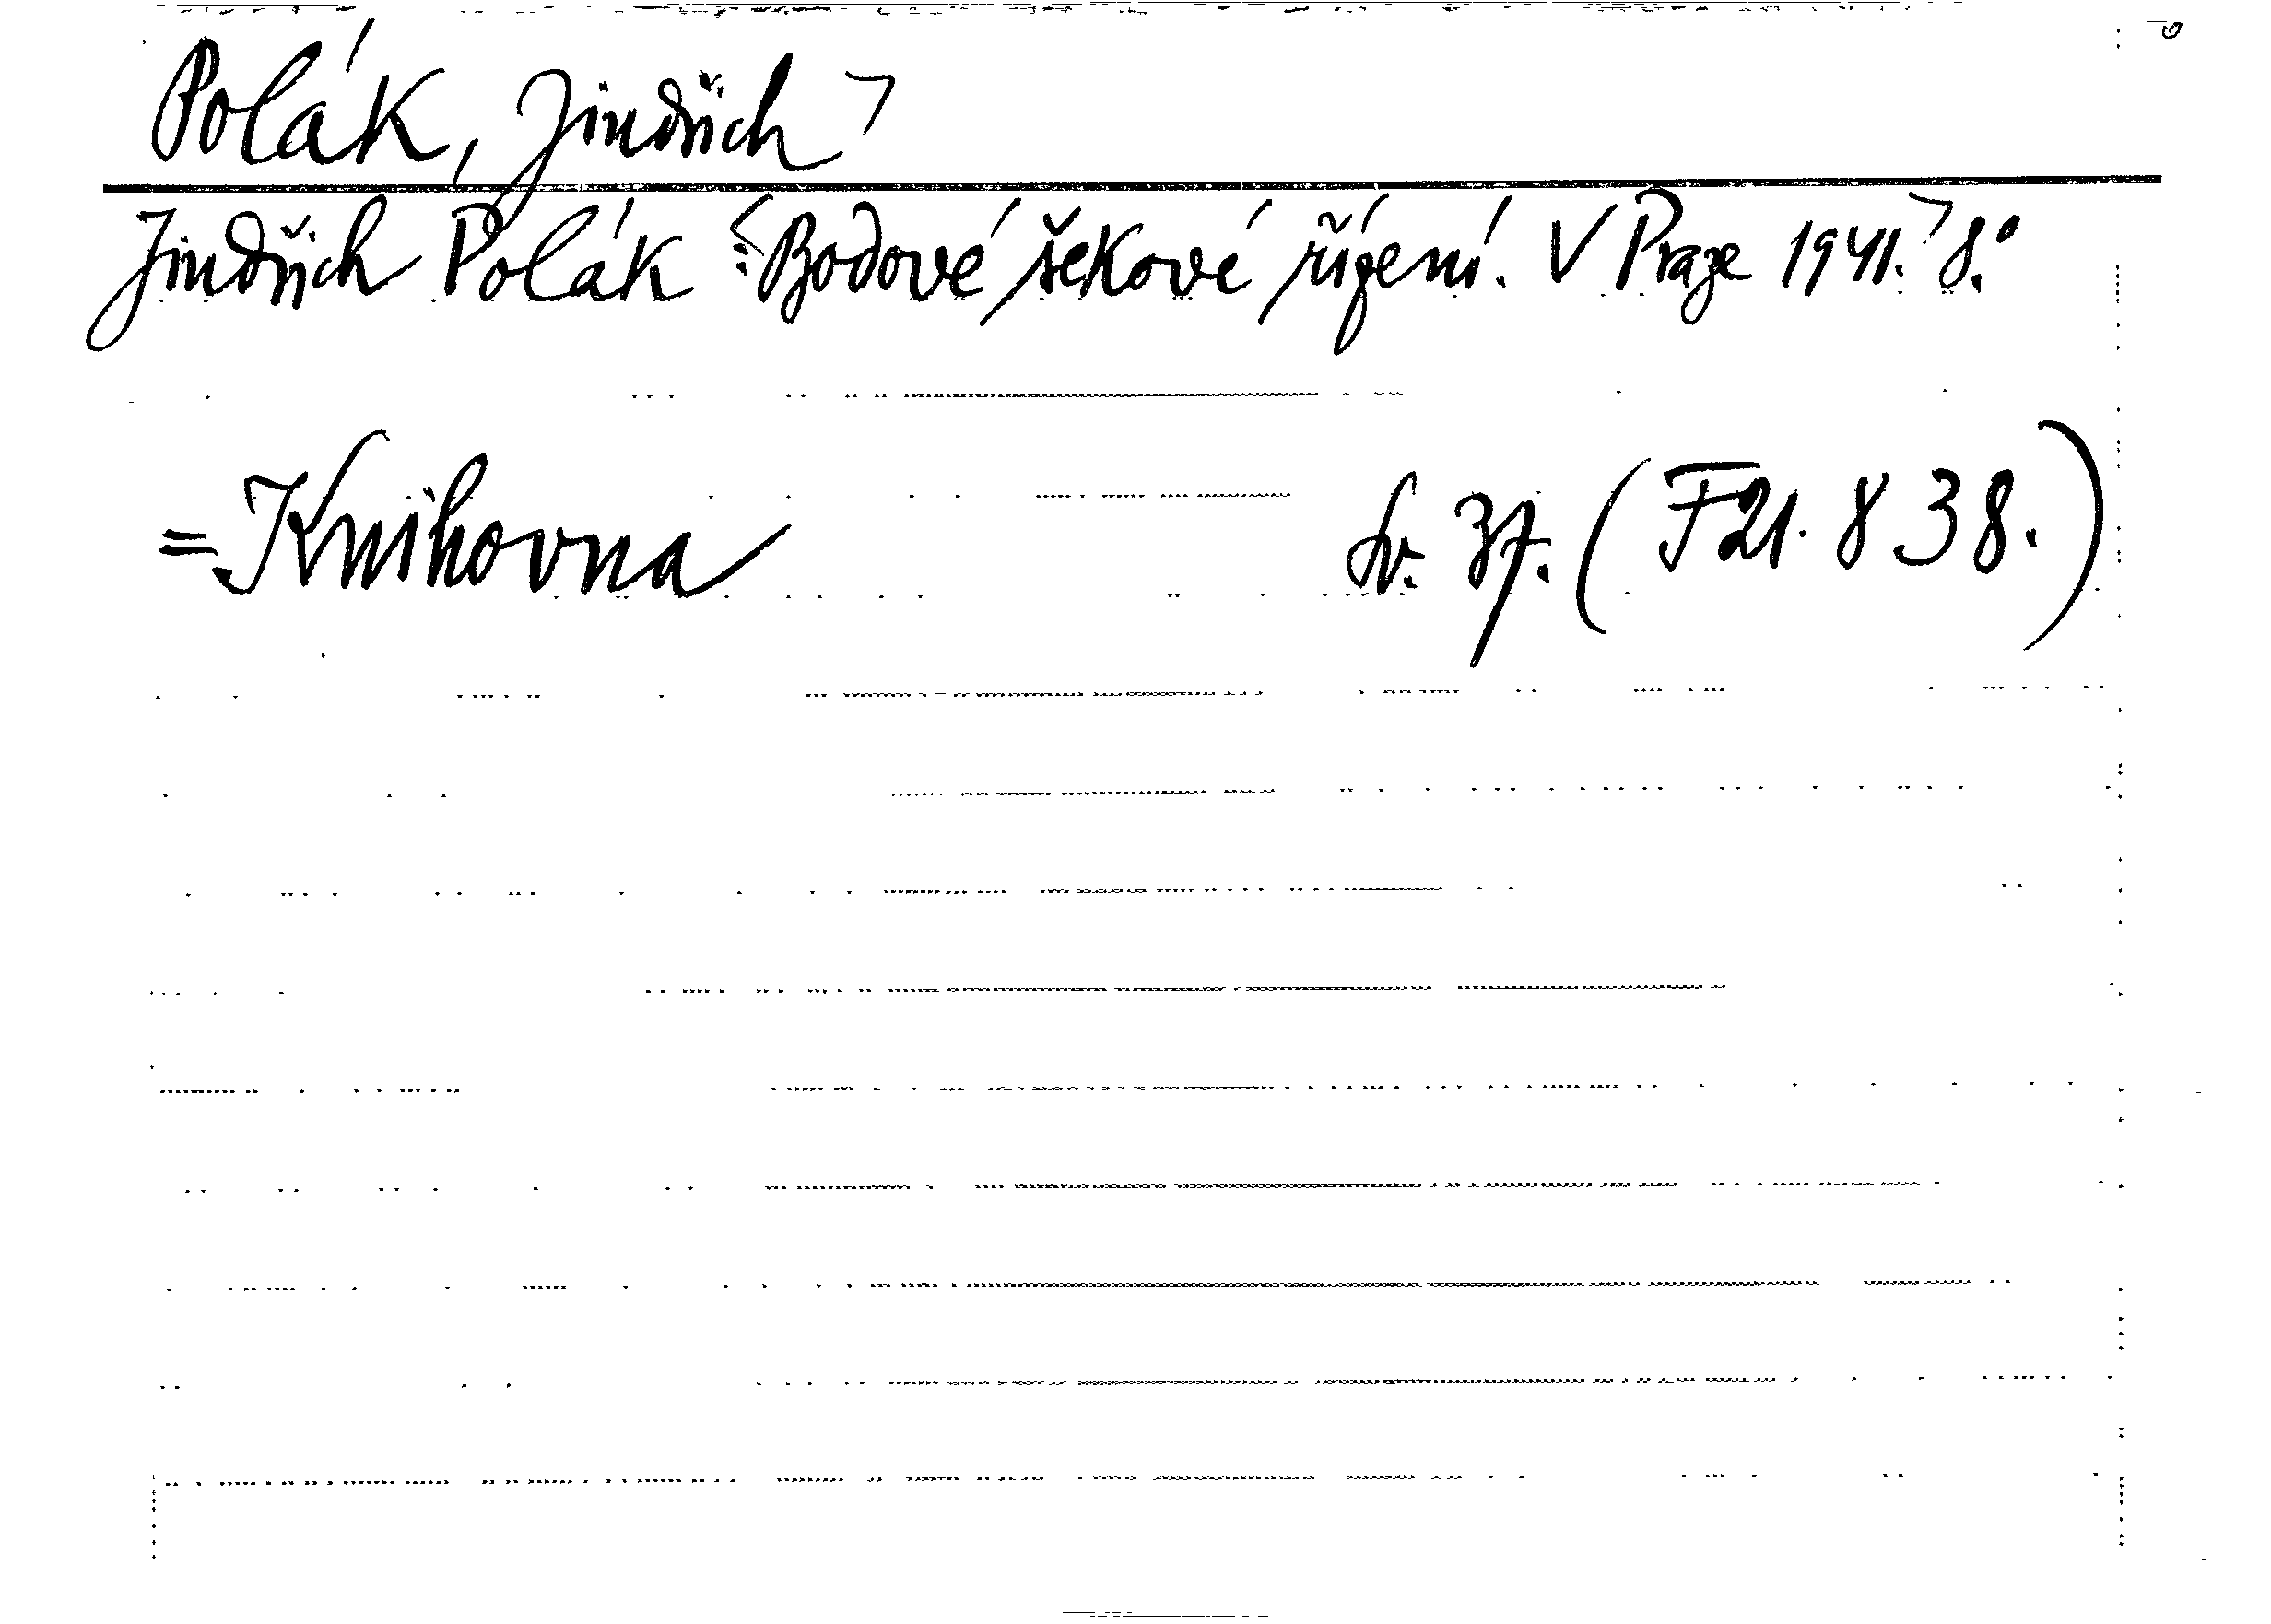 Polák, Jindřich
Jindřich Polák : Bodové šekové řízení. V Praze 1941. 8.°
= Knihovna sv. 37. (F 21. 838.)